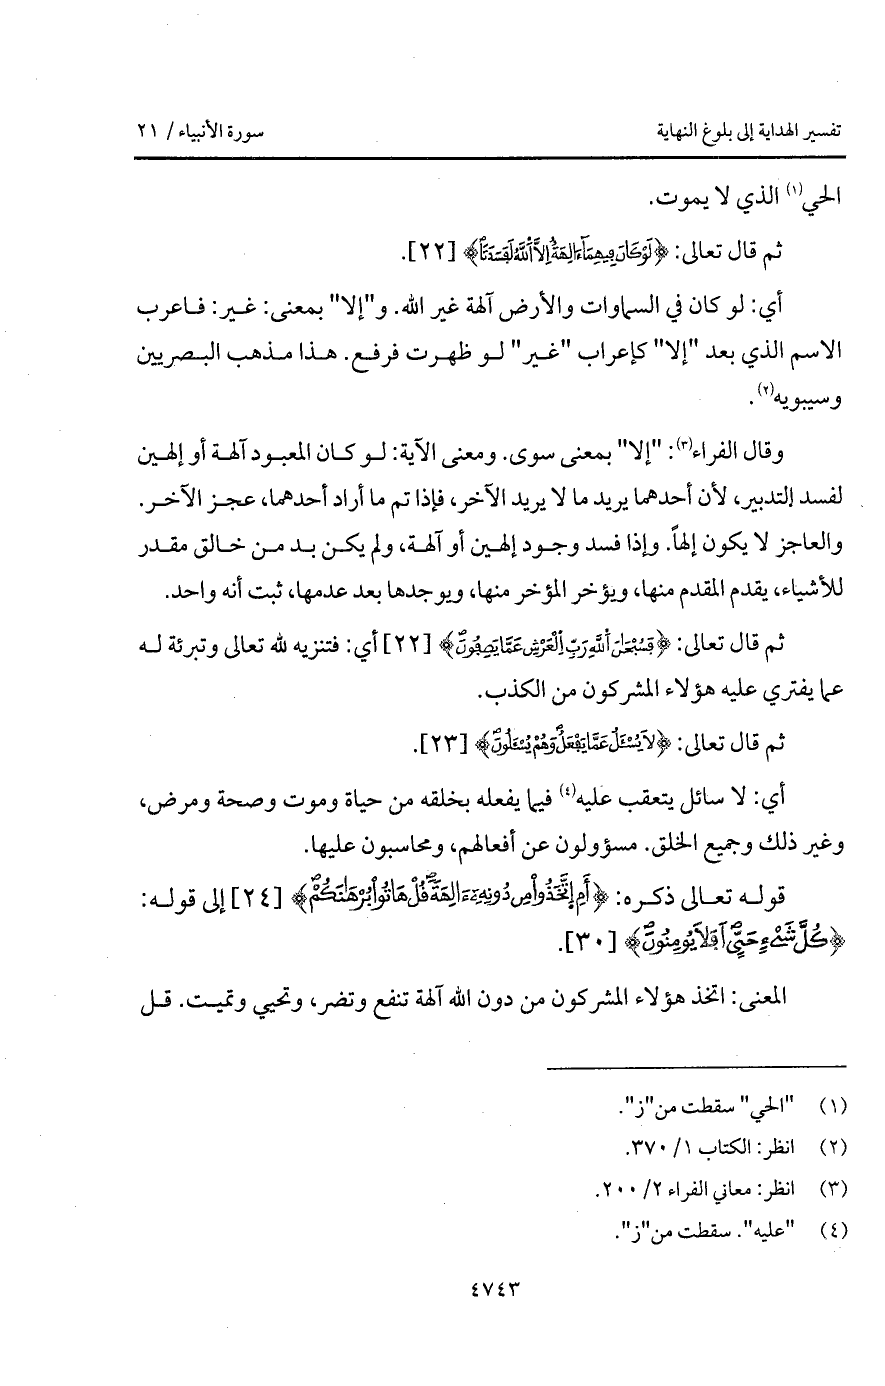 تفسير الهداية إلى بلوغ النهاية سورة الأنبياء/ ٢١
الحي(١) الذي لا يموت.
ثم قال تعالى: ﴿لَوْ كَانَ فِيهِمَآ ءَالِهَةٌ إِلاَّ اَللَّهُ لَفَسَدَتَا﴾ [٢٢].
أي: لو كان في السماوات والأرض آلهة غير الله. و"إلا" بمعنى: غير: فاعرب
الاسم الذي بعد "إلا" كإعراب "غير" لو ظهرت فرفع. هذا مذهب البصريين
وسيبويه(٢).
وقال الفراء(٣): "إلا" بمعنى سوى. ومعنى الآية: لو كان المعبود آلهة أو إلهين
لفسد التدبير، لأن أحدهما يريد ما لا يريد الآخر، فإذا تم ما أراد أحدهما، عجز الآخر.
والعاجز لا يكون إلهاً. وإذا فسد وجود إلهين أو آلهة، ولم يكن بد من خالق مقدر
للأشياء، يقدم المقدم منها، ويؤخر المؤخر منها، ويوجدها بعد عدمها، ثبت أنه واحد.
ثم قال تعالى: ﴿فَسُبْحَٰنَ اَللَّهِ رَبِّ اِلْعَرْشِ عَمَّا يَصِفُونَ﴾ [٢٢] أي: فتنزيه لله تعالى وتبرئة له
عما يفتري عليه هؤلاء المشركون من الكذب.
ثم قال تعالى: ﴿لاَ يُسْـَٔلُ عَمَّا يَفْعَلُ وَهُمْ يُسْـَٔلُونَ﴾ [٢٣].
أي: لا سائل يتعقب عليه(٤) فيما يفعله بخلقه من حياة وموت وصحة ومرض،
وغير ذلك وجميع الخلق. مسؤولون عن أفعالهم، ومحاسبون عليها.
قوله تعالى ذكره: ﴿أَمِ اِتَّخَذُواْ مِن دُونِهِۦٓ ءَالِهَةً قُلْ هَاتُواْ بُرْهَٰنَكُمْ﴾ [٢٤] إلى قوله:
﴿كُلَّ شَےْءٍ حَيٍّ اَفَلاَ يُومِنُونَ﴾ [٣٠].
المعنى: اتخذ هؤلاء المشركون من دون الله آلهة تنفع وتضر، وتحيي وتميت. قل
(١) "الحي" سقطت من "ز".
(٢) انظر: الكتاب ١/ ٣٧٠.
(٣) انظر: معاني الفراء ٢/ ٢٠٠.
(٤) "عليه". سقطت من "ز".
٤٧٤٣